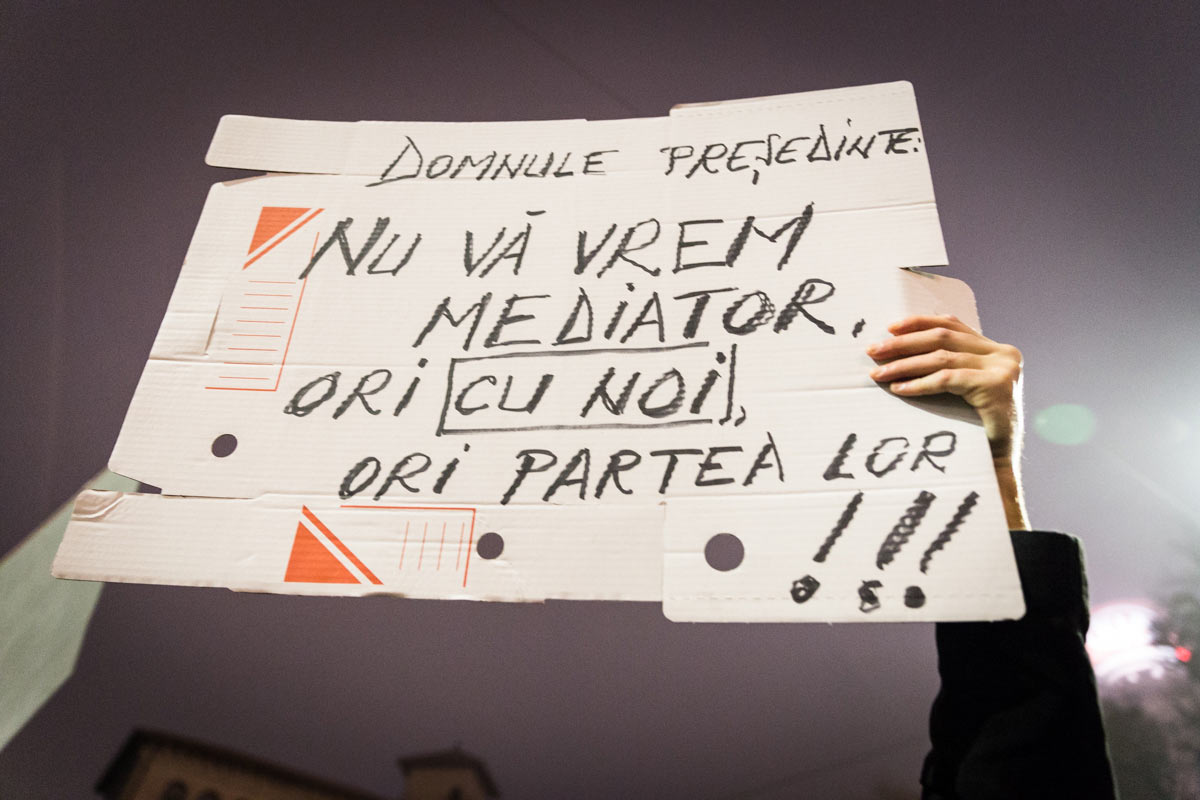 DOMNULE PREȘEDINTE:
NU VĂ VREM
MEDIATOR.
ORI CU NOI,
ORI PARTEA LOR
!!!